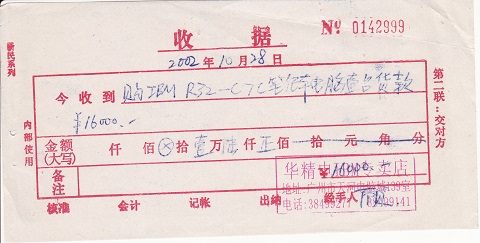 收 据 № 0142999
新民系列
2002 年 10 月 28 日
今收到 购IBM R32-C7C笔记本电脑壹台货款
¥16000.-
金额(大写) 仟 佰 ⊗ 拾 壹 万 陆 仟 正 佰 拾 元 角 分
备注 ¥16000.-
华精 卖店
地址:广州市天河 139室
电话:38499 141
核准 会计 记帐 出纳 经手人
内部使用
第二联:交对方